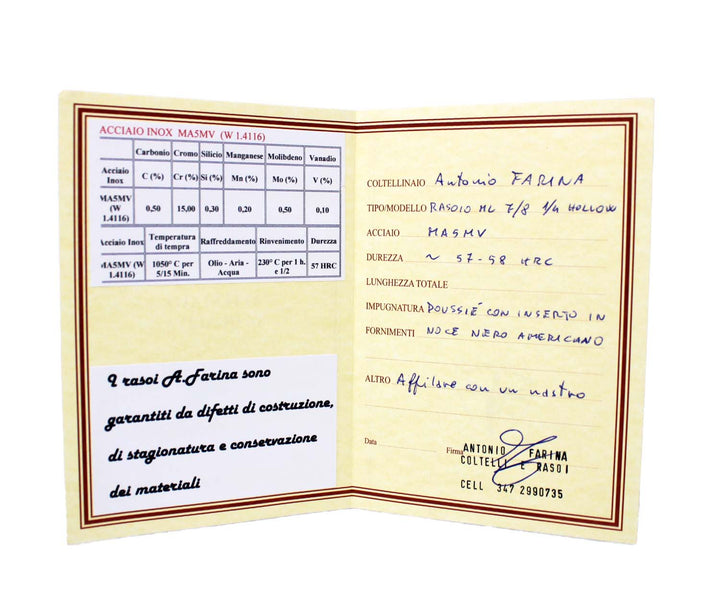 ACCIAIO INOX MA5MV (W 1.4116)
Carbonio Cromo Silicio Manganese Molibdeno Vanadio
Acciaio Inox C (%) Cr (%) Si (%) Mn (%) Mo (%) V (%)
MA5MV (W 1.4116) 0,50 15,00 0,30 0,20 0,50 0,10
Acciaio Inox Temperatura di tempra Raffreddamento Rinvenimento Durezza
MA5MV (W 1.4116) 1050° C per 5/15 Min. Olio - Aria - Acqua 230° C per 1 h. e 1/2 57 HRC
I rasoi A.Farina sono
garantiti da difetti di costruzione,
di stagionatura e conservazione
dei materiali
COLTELLINAIO Antonio FARINA
TIPO/MODELLO RASOIO ML 7/8 1/4 HOLLOW
ACCIAIO MA5MV
DUREZZA ~ 57-58 HRC
LUNGHEZZA TOTALE
IMPUGNATURA POUSSIÉ CON INSERTO IN
FORNIMENTI NOCE NERO AMERICANO
ALTRO Affilare con un nastro
Data Firma
ANTONIO FARINA
COLTELLI E RASOI
CELL 347 2990735